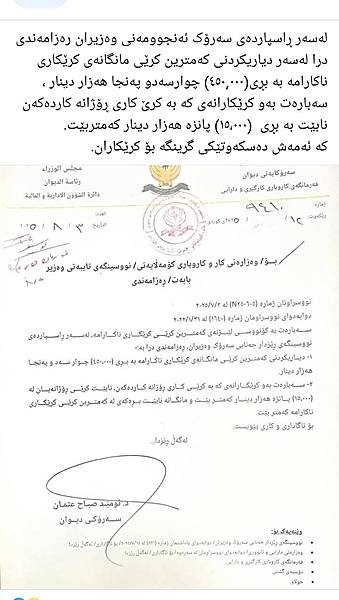 لەسەر ڕاسپاردەی سەرۆک ئەنجوومەنی وەزیران رەزامەندی
درا لەسەر دیاریکردنی کەمترین کرێی مانگانەی کرێکاری
ناکارامە بە بڕی(٤٥٠,٠٠٠) چوارسەدو پەنجا هەزار دینار ،
سەبارەت بەو کرێکارانەی کە بە کرێ کاری ڕۆژانە کاردەکەن
نابێت بە بڕی (١٥,٠٠٠) پانزە هەزار دینار کەمتربێت.
کە ئەمەش دەسکەوتێکی گرینگە بۆ کرێکاران.
سەرۆکایەتی دیوان
مجلس الوزراء
فەرمانگەی کاروباری کارگێڕی و دارایی
رئاسة الديوان
دائرة الشؤون الادارية و المالية
ژمارە:
العدد:
ڕێکەوت:
کوردی
التاريخ: ٣ / ٨ / ٢٠٢٥
بـۆ/ وەزارەتی کار و کاروباری کۆمەڵایەتی/ نووسینگەی تایبەتی وەزیر
بابەت/ ڕەزامەندی
نووسراوتان ژمارە (N٢٥-٦٠٥) لە ٢٠٢٥/٧/٢
دوابەدوای نووسراومان ژمارە (١٦٤٠) لە ٢٠٢٢/١/٣١
سەبارەت بە کۆنووسی لێژنەی کەمترین کرێی کرێکاری ناکارامە، لەسەر ڕاسپاردەی
نووسینگەی ڕێزدار جەنابی سەرۆک وەزیران، ڕەزامەندی درا بە:-
١- دیاریکردنی کەمترین کرێی مانگانەی کرێکاری ناکارامە بە بڕی (٤٥٠,٠٠٠) چوار سەد و پەنجا
هەزار دینار.
٢- سەبارەت بەو کرێکارانەی کە بە کرێی کاری ڕۆژانە کاردەکەن، نابێت کرێی ڕۆژانەیان لە
(١٥,٠٠٠) پانزە هەزار دینار کەمتر بێت و مانگانە نابێت بڕەکەی لە کەمترین کرێی کرێکاری
ناکارامە کەمتر بێت.
بۆ ئاگاداری و کاری پێویست.
لەگەڵ ڕێزدا...
د. ئومێد صباح عثمان
سەرۆکی دیـوان
وێنەیەک بۆ:
نووسینگەی ڕێزدار جەنابی سەرۆک وەزیران/
فەرمانگەی کاروباری کارگێڕی و دارایی.
دۆسیەی گشتی
خولاو.